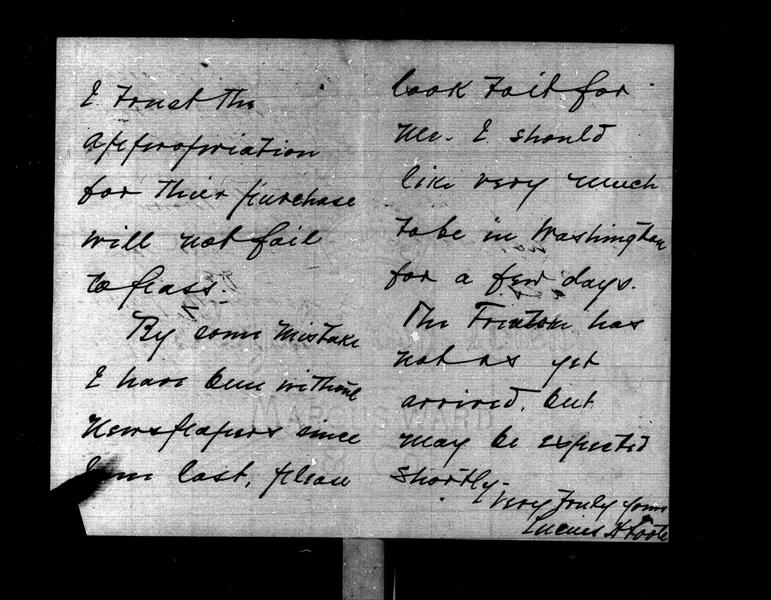 I trust the
appropriation
for their purchase
will not fail
to pass.
By some mistake
I have been without
Newspapers since
last, please
look to it for
me. I should
like very much
to be in Washington
for a few days.
The Trenton has
not as yet
arrived, but
may be expected
shortly.
Very truly yours
Lucius H Foote
MARCUS WARD